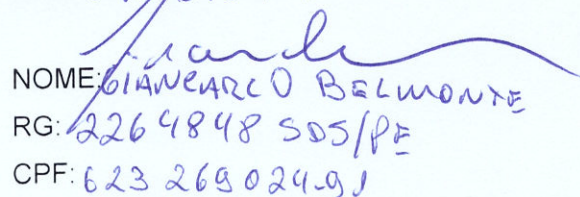 NOME: GIANCARLO BELMONTE
RG: 2264848 SDS/PE
CPF: 623 269 024-91